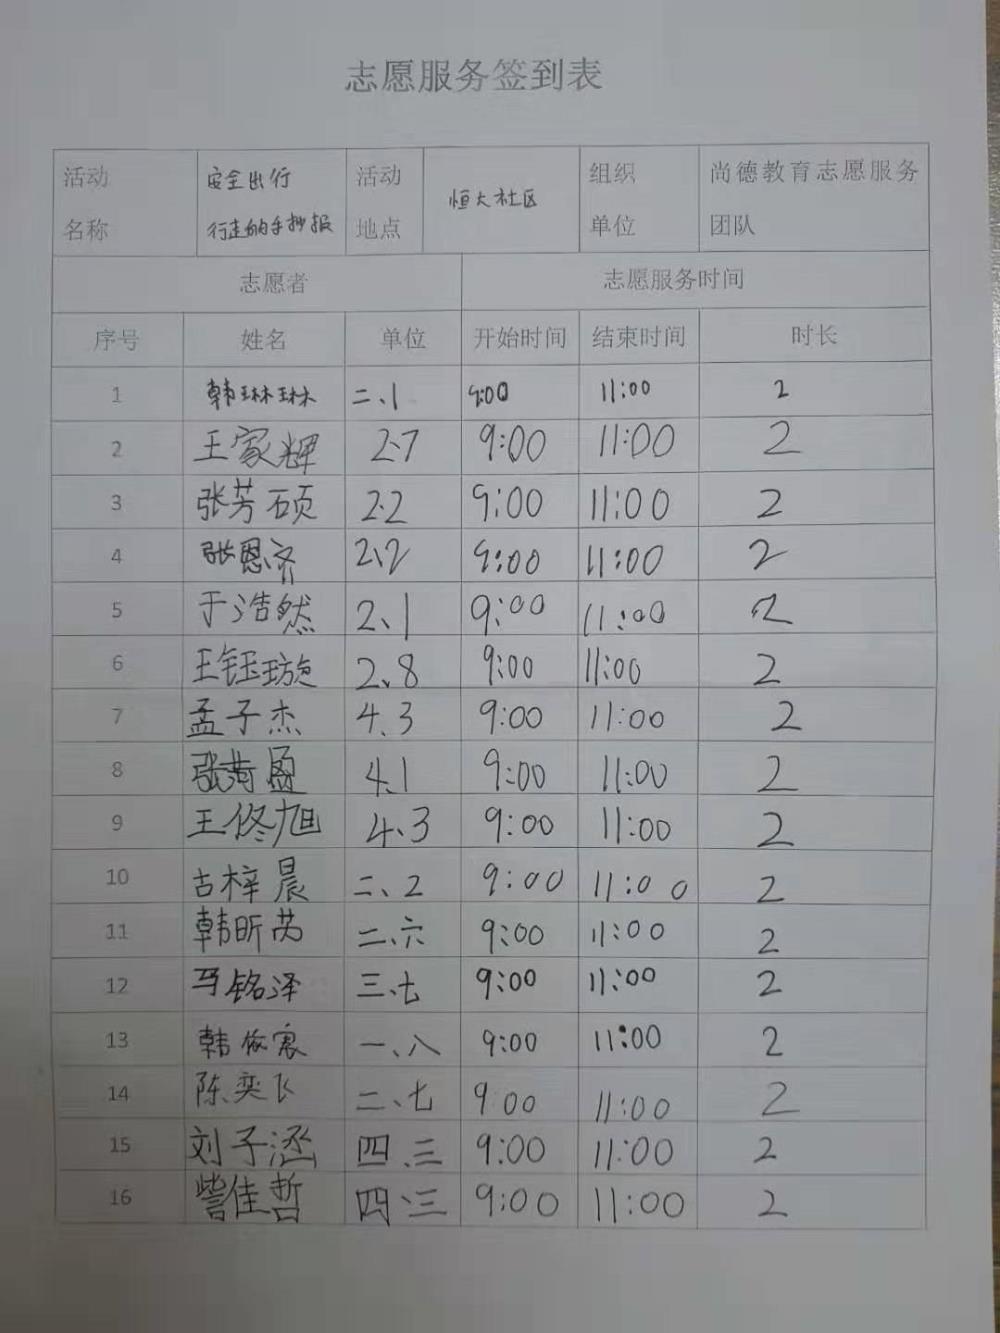 志愿服务签到表
活动名称 安全出行行走的手抄报 活动地点 恒大社区 组织单位 尚德教育志愿服务团队
志愿者 志愿服务时间
序号 姓名 单位 开始时间 结束时间 时长
1 韩琳琳 二、1 9:00 11:00 2
2 王家辉 2.7 9:00 11:00 2
3 张芳硕 2.2 9:00 11:00 2
4 张恩齐 2、2 9:00 11:00 2
5 于浩然 2、1 9:00 11:00 2
6 王钰璇 2、8 9:00 11:00 2
7 孟子杰 4.3 9:00 11:00 2
8 张 盈 4.1 9:00 11:00 2
9 王佟旭 4、3 9:00 11:00 2
10 古梓晨 二、2 9:00 11:00 2
11 韩昕芮 二、六 9:00 11:00 2
12 马铭泽 三、七 9:00 11:00 2
13 韩依宸 一、八 9:00 11:00 2
14 陈奕飞 二、七 9:00 11:00 2
15 刘子涵 四、三 9:00 11:00 2
16 訾佳哲 四、三 9:00 11:00 2